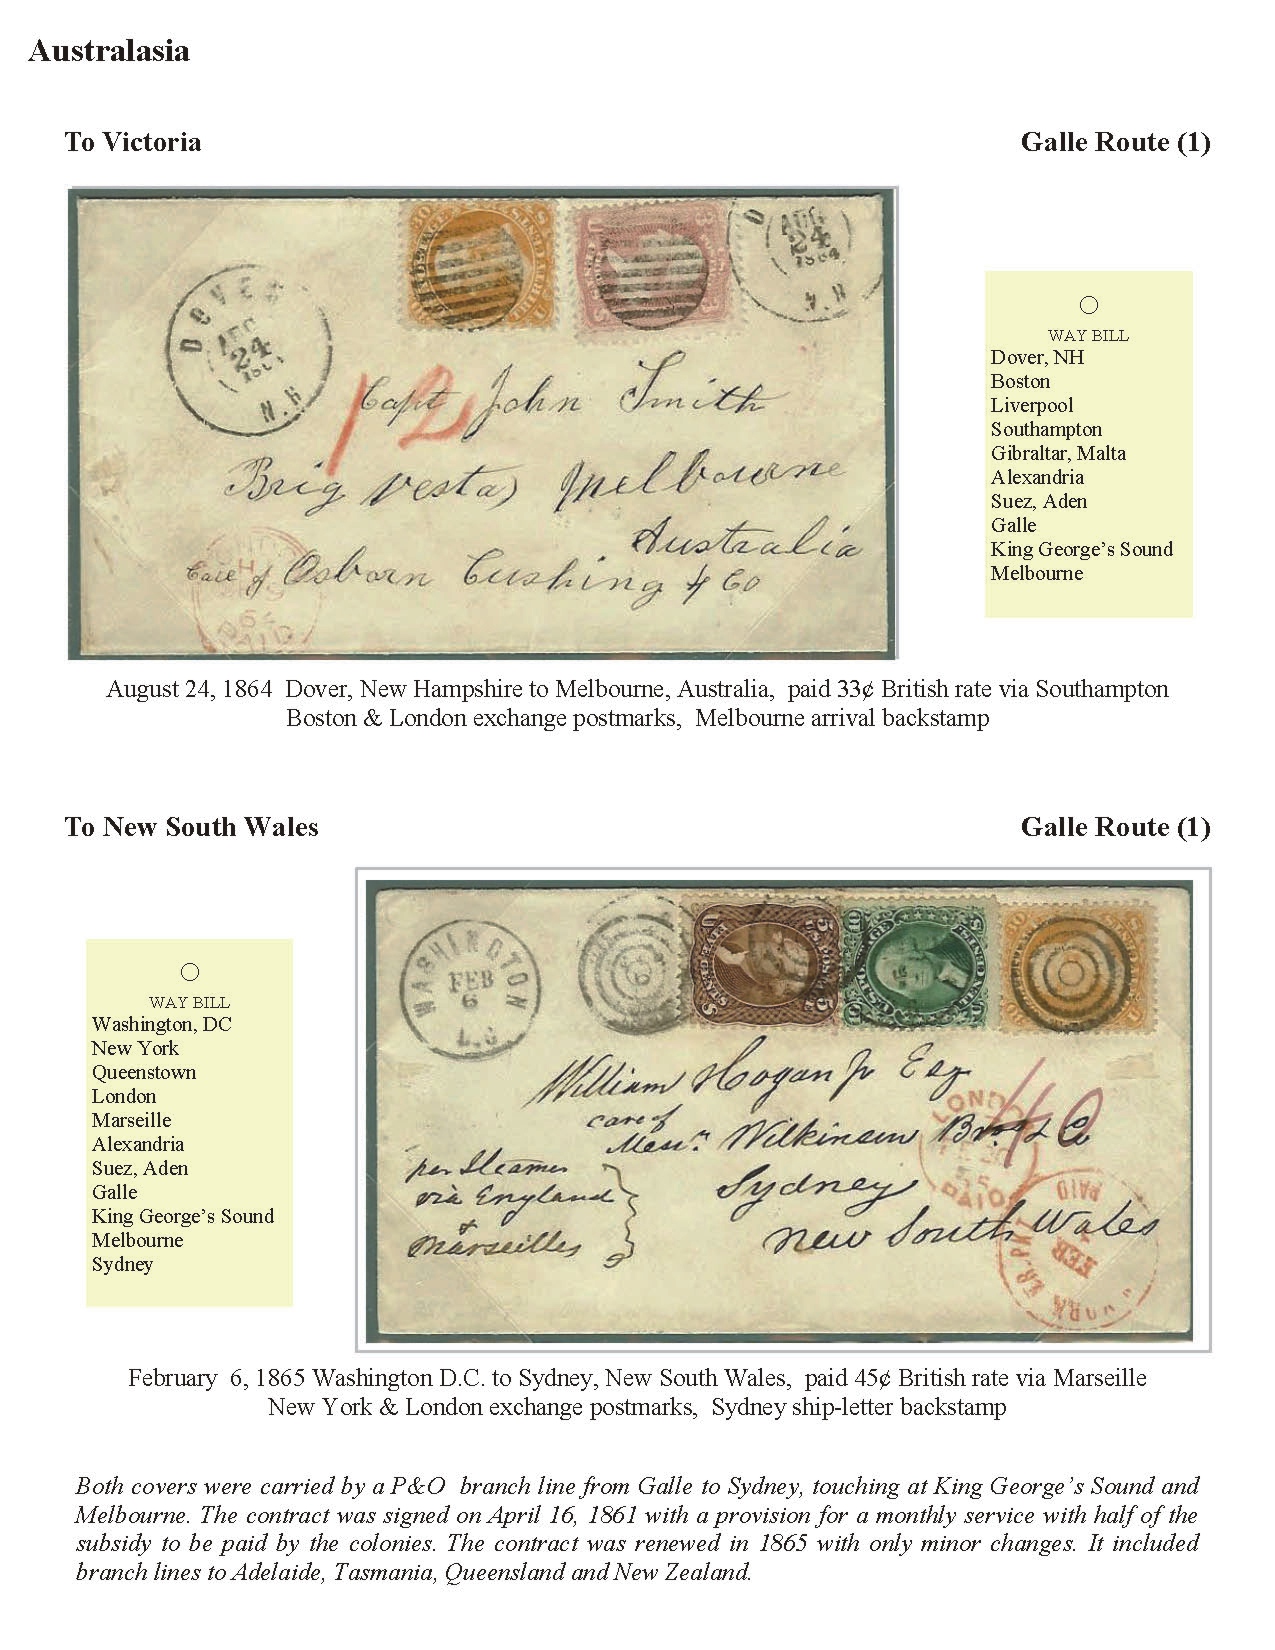 Australasia
To Victoria
Galle Route (1)
DOVER
AUG
24
N.H
AUG
24
1864
N.H
12
Capt John Smith
Brig Vesta, Melbourne
Australia
Care of Osborn Cushing & Co
PAID
WAY BILL
Dover, NH
Boston
Liverpool
Southampton
Gibraltar, Malta
Alexandria
Suez, Aden
Galle
King George's Sound
Melbourne
August 24, 1864 Dover, New Hampshire to Melbourne, Australia, paid 33¢ British rate via Southampton
Boston & London exchange postmarks, Melbourne arrival backstamp
To New South Wales
Galle Route (1)
WAY BILL
Washington, DC
New York
Queenstown
London
Marseille
Alexandria
Suez, Aden
Galle
King George's Sound
Melbourne
Sydney
WASHINGTON
FEB
6
5
U.S. POSTAGE
5
10
U.S. POSTAGE
30
William Hogan Jr Esq
care of
Messrs Wilkinson Bros & Co
Sydney
New South Wales
per Steamer
via England
&
Marseilles
40
LONDON
PAID
PAID
FEB
YORK BR. PKT
February 6, 1865 Washington D.C. to Sydney, New South Wales, paid 45¢ British rate via Marseille
New York & London exchange postmarks, Sydney ship-letter backstamp
Both covers were carried by a P&O branch line from Galle to Sydney, touching at King George's Sound and
Melbourne. The contract was signed on April 16, 1861 with a provision for a monthly service with half of the
subsidy to be paid by the colonies. The contract was renewed in 1865 with only minor changes. It included
branch lines to Adelaide, Tasmania, Queensland and New Zealand.